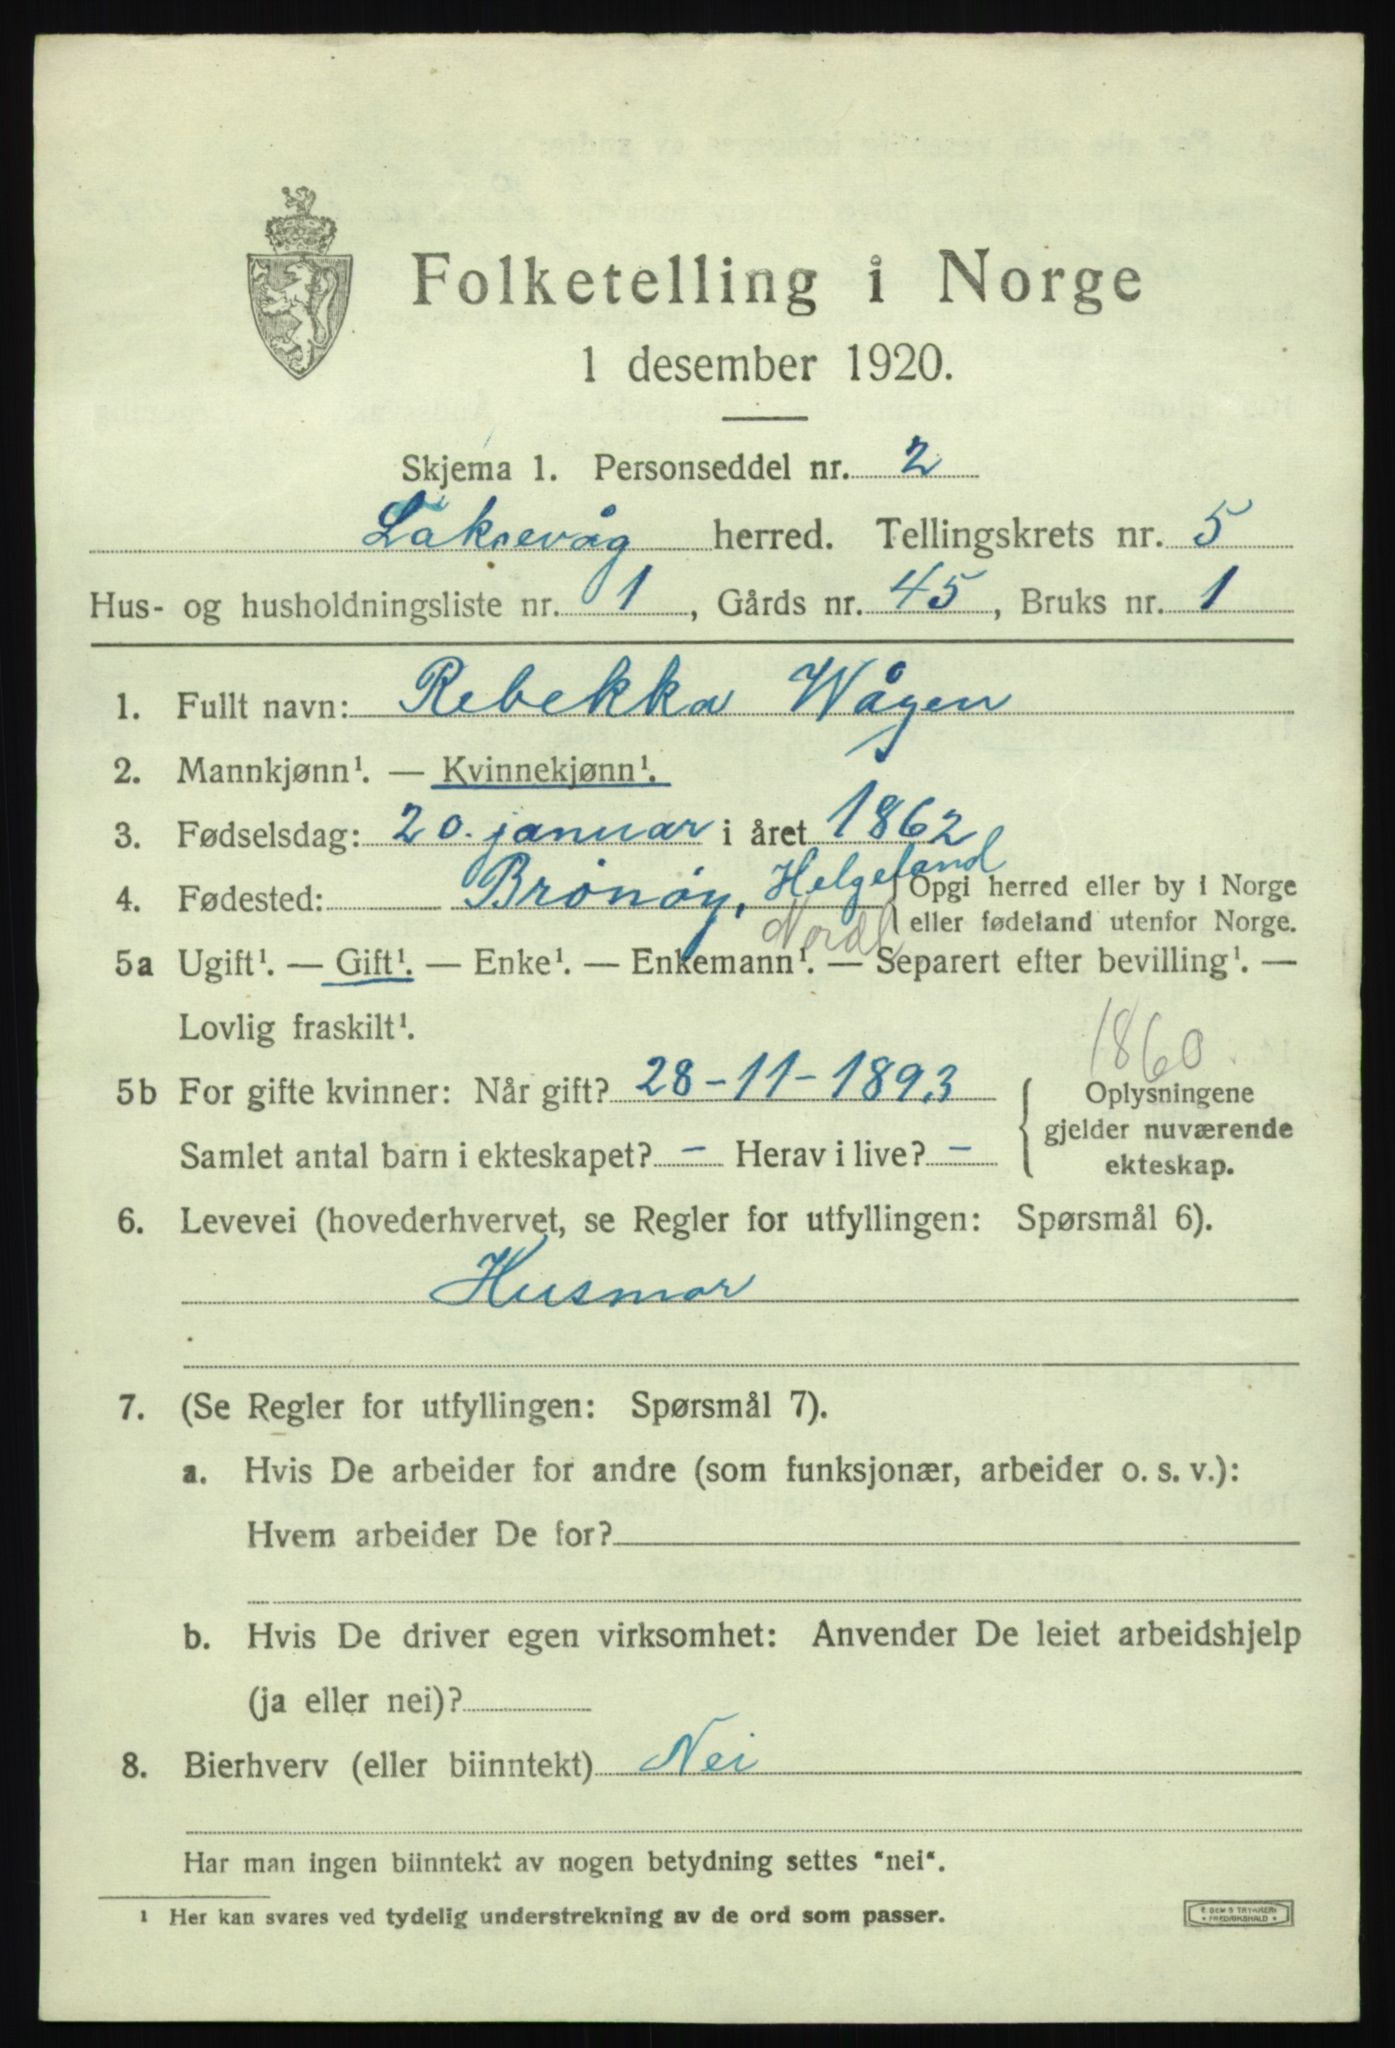 Folketelling i Norge
1 desember 1920.
Skjema 1. Personseddel nr. 2
Laksevåg herred. Tellingskrets nr. 5
Hus- og husholdningsliste nr. 1, Gårds nr. 45, Bruks nr. 1
1. Fullt navn: Rebekka Wågen
2. Mannkjønn¹. — Kvinnekjønn¹.
3. Fødselsdag: 20. januar i året 1862
4. Fødested: Brønøy, Helgeland { Opgi herred eller by i Norge
Nordl eller fødeland utenfor Norge.
5a Ugift¹. — Gift¹. — Enke¹. — Enkemann¹. — Separert efter bevilling¹. —
Lovlig fraskilt¹.
1860
5b For gifte kvinner: Når gift? 28-11-1893 { Oplysningene
gjelder nuværende
Samlet antal barn i ekteskapet? - Herav i live? - ekteskap.
6. Levevei (hovederhvervet, se Regler for utfyllingen: Spørsmål 6).
Husmor
7. (Se Regler for utfyllingen: Spørsmål 7).
a. Hvis De arbeider for andre (som funksjonær, arbeider o. s. v.):
Hvem arbeider De for?
b. Hvis De driver egen virksomhet: Anvender De leiet arbeidshjelp
(ja eller nei)?
8. Bierhverv (eller biinntekt) Nei
Har man ingen biinntekt av nogen betydning settes "nei".
¹ Her kan svares ved tydelig understrekning av de ord som passer.
FREDRIKSHALD